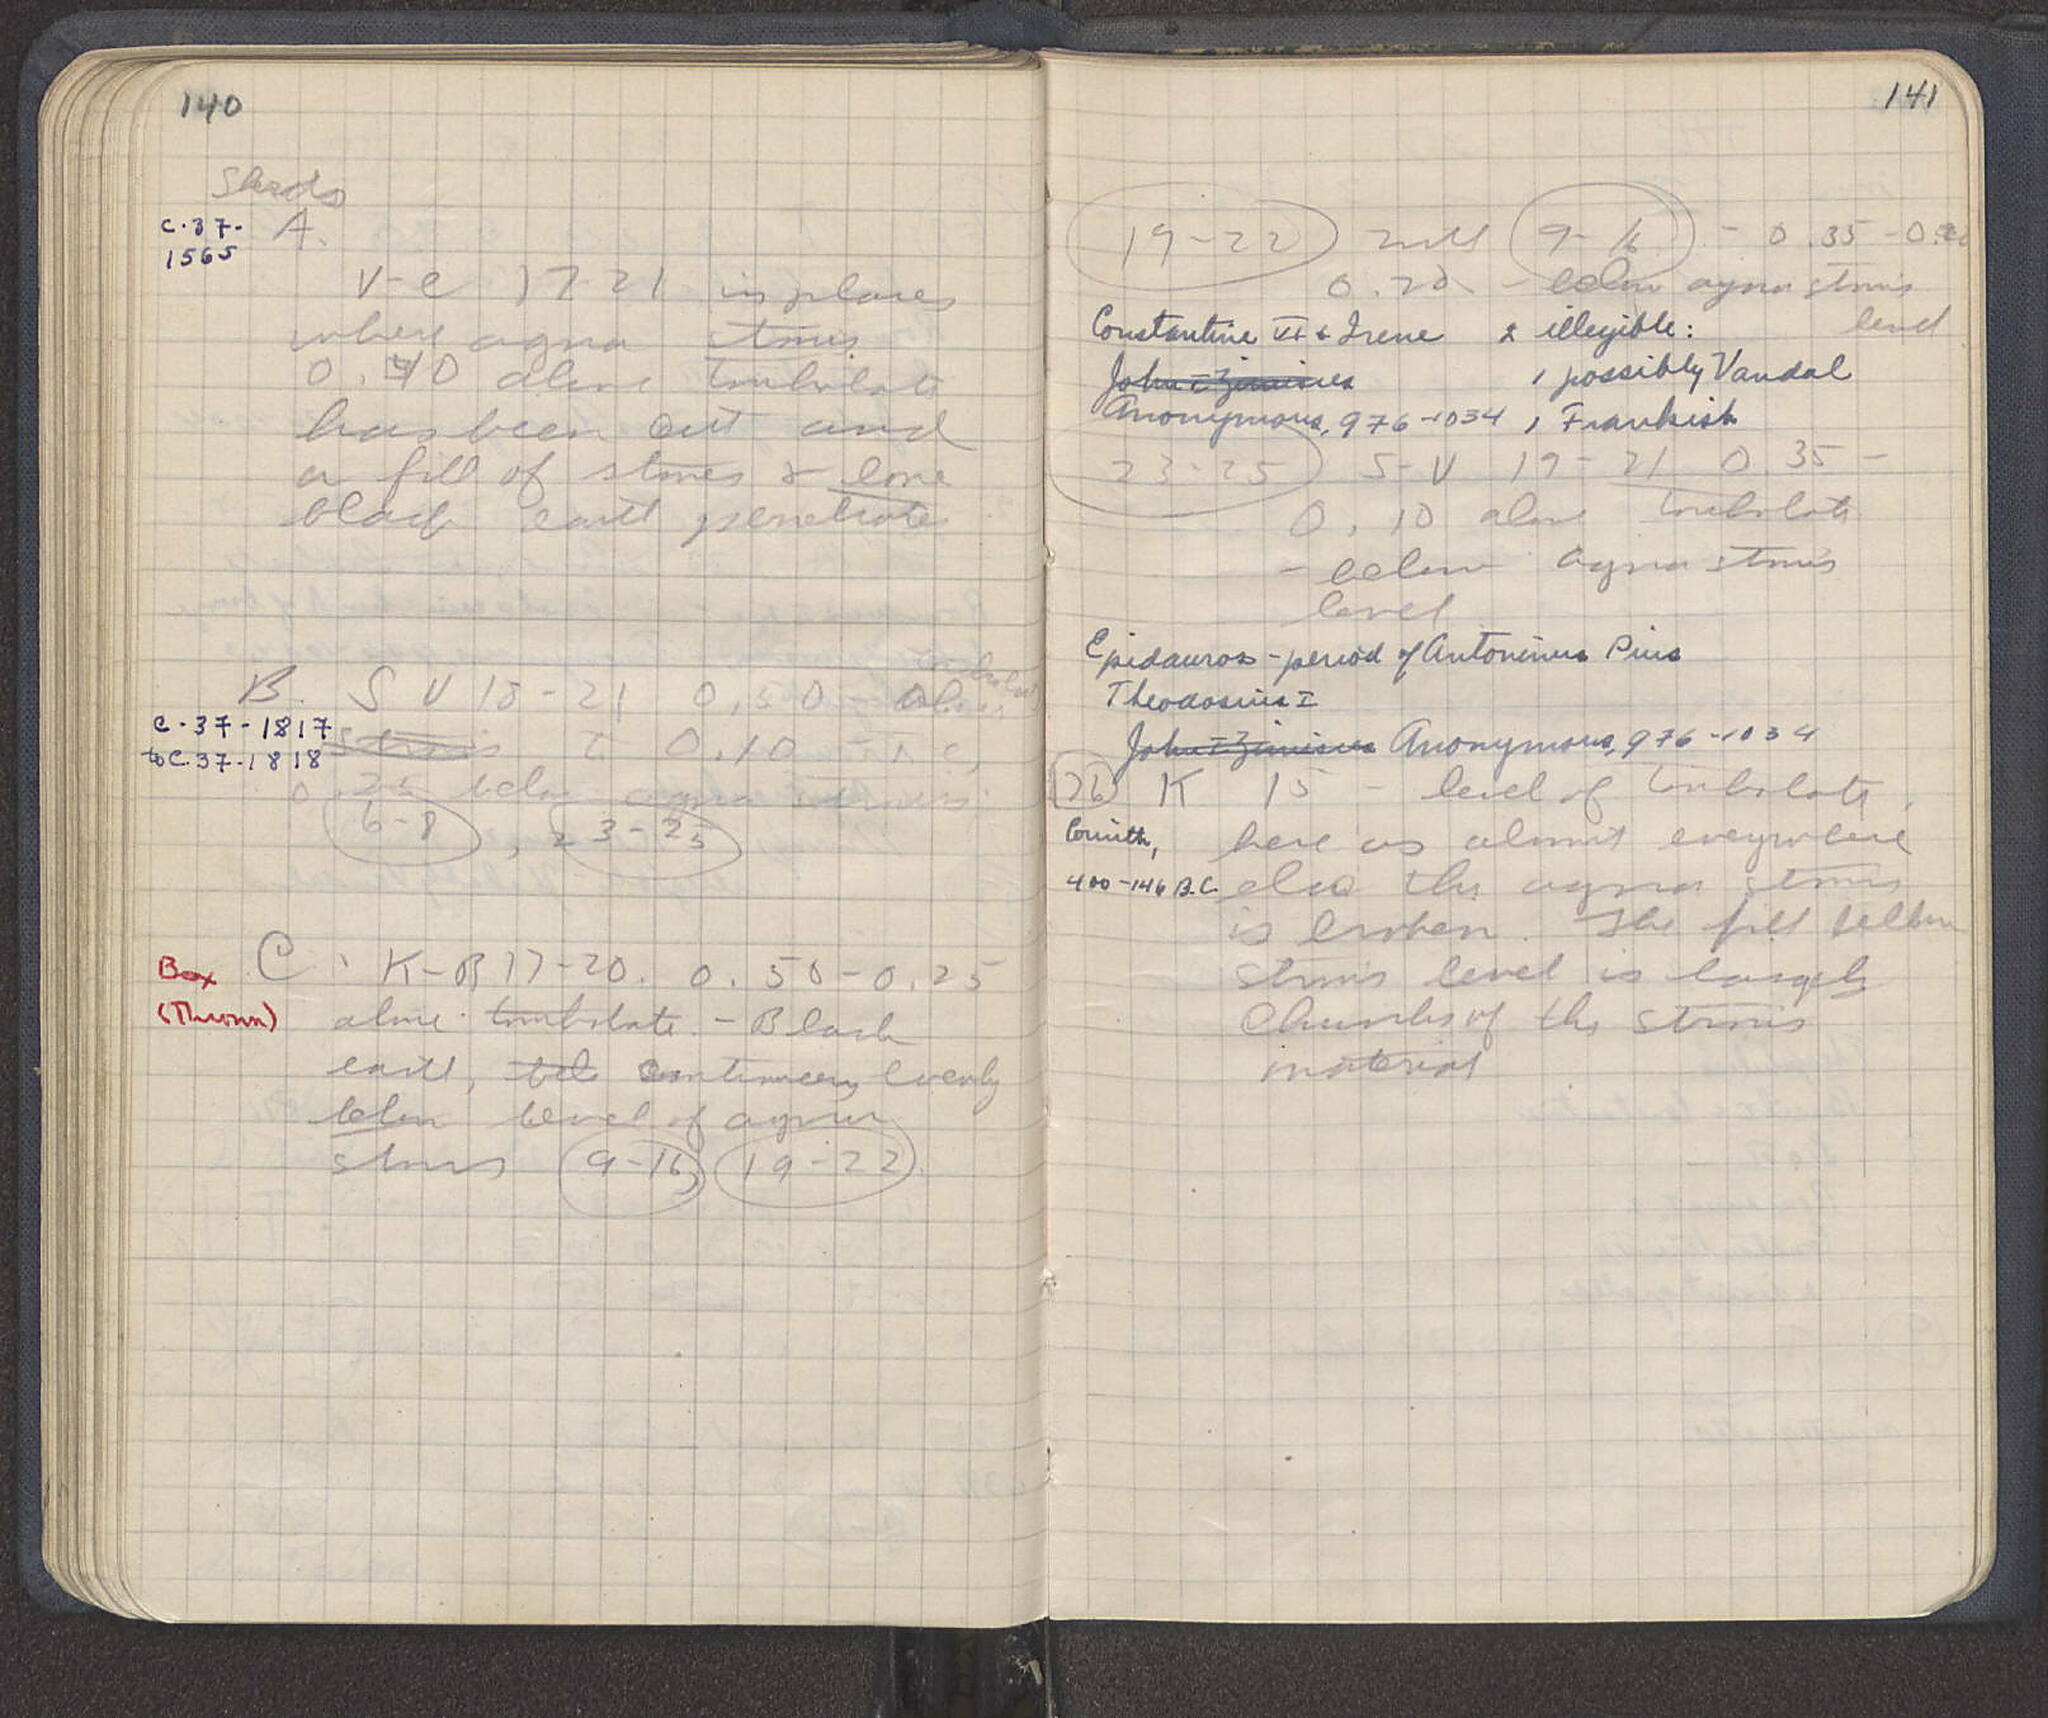 140
Sherds
C-37-
1565
A.
V-e 17-21 in places
where agora stroses
0.40 above tombolata
has been cut and
a fill of stones & lone
black earth penetrates
B. S V 18-21 0,50 - above
C-37-1817
to C.37-1818
0,10
0.25 below agora
6-8 , 23-25
Box
(Thrown)
C. K-B 17-20. 0.50-0.25
above tombolata - Black
earth, continuing evenly
below level of agora
9-16, 19-22.
141
19-22 with 9-16 - 0.35-
0.20 - below agora strosis
level
Constantine VI & Irene 2 illegible:
John I Zimisces 1 possibly Vandal
Anonymous, 976-1034 1 Frankish
23-25 S-V 19-21 0.35-
0,10 above tombolata
- below agora strosis
level
Epidauros - period of Antoninus Pius
Theodosius I
John I Zimisces Anonymous, 976-1034
26 K 15 - level of tombolata,
Corinth,
400-146 B.C.
here as almost everywhere
else the agora strosis
is broken. The fill below
strosis level is largely
chunks of the strosis
material